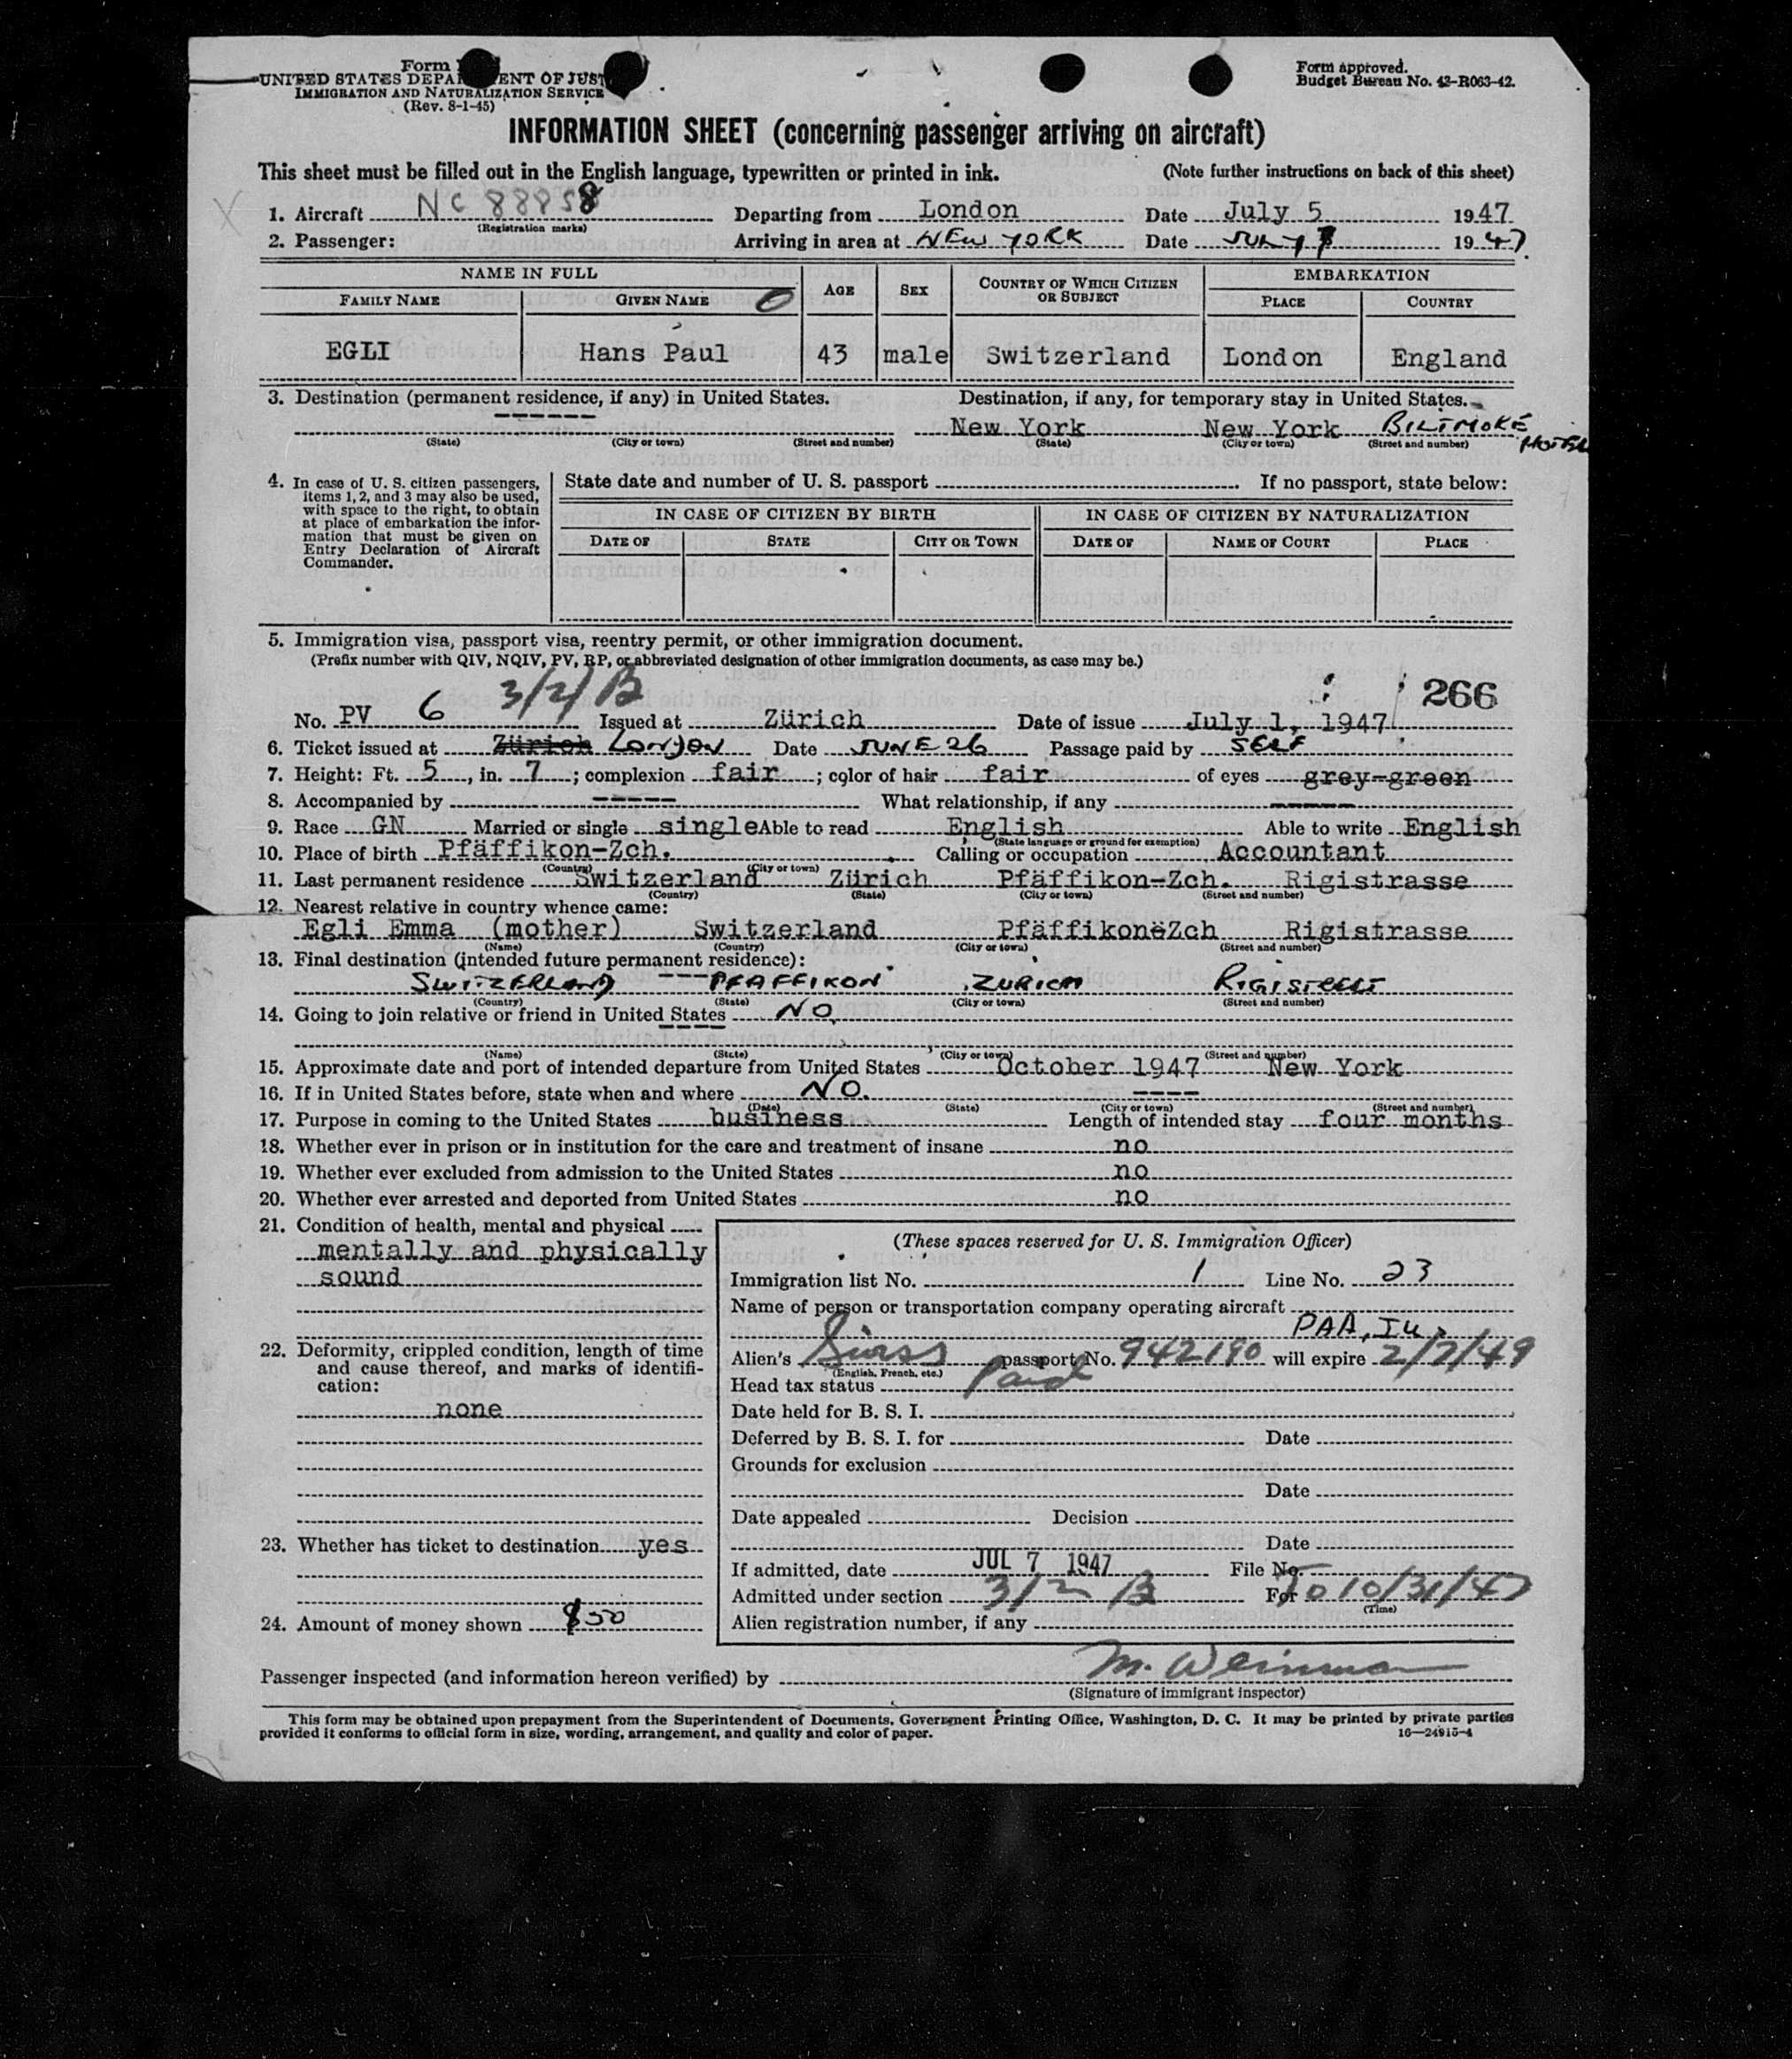 Form
UNITED STATES DEPA ENT OF JUST
IMMIGRATION AND NATURALIZATION SERVICE
(Rev. 8-1-45)
Form approved.
Budget Bureau No. 43-R063-42.
INFORMATION SHEET (concerning passenger arriving on aircraft)
This sheet must be filled out in the English language, typewritten or printed in ink. (Note further instructions on back of this sheet)
1. Aircraft NC 88858 Departing from London Date July 5 1947
(Registration marks)
2. Passenger: Arriving in area at NEW YORK Date JULY 7 1947
NAME IN FULL AGE SEX COUNTRY OF WHICH CITIZEN OR SUBJECT EMBARKATION
FAMILY NAME GIVEN NAME PLACE COUNTRY
EGLI Hans Paul 43 male Switzerland London England
3. Destination (permanent residence, if any) in United States. Destination, if any, for temporary stay in United States.
------ New York New York BILTMORE HOTEL
(State) (City or town) (Street and number) (State) (City or town) (Street and number)
4. In case of U. S. citizen passengers, items 1, 2, and 3 may also be used, with space to the right, to obtain at place of embarkation the information that must be given on Entry Declaration of Aircraft Commander.
State date and number of U. S. passport If no passport, state below:
IN CASE OF CITIZEN BY BIRTH IN CASE OF CITIZEN BY NATURALIZATION
DATE OF STATE CITY OR TOWN DATE OF NAME OF COURT PLACE
5. Immigration visa, passport visa, reentry permit, or other immigration document.
(Prefix number with QIV, NQIV, PV, RP, or abbreviated designation of other immigration documents, as case may be.)
3/2/B 266
No. PV 6 Issued at Zürich Date of issue July 1, 1947
6. Ticket issued at Zürich LONDON Date JUNE 26 Passage paid by SELF
7. Height: Ft. 5, in. 7; complexion fair; color of hair fair of eyes grey-green
8. Accompanied by ----- What relationship, if any -----
9. Race GN Married or single single Able to read English Able to write English
(State language or ground for exemption)
10. Place of birth Pfäffikon-Zch. Calling or occupation Accountant
(Country) (City or town)
11. Last permanent residence Switzerland Zürich Pfäffikon-Zch. Rigistrasse
(Country) (State) (City or town) (Street and number)
12. Nearest relative in country whence came:
Egli Emma (mother) Switzerland PfäffikonëZch Rigistrasse
(Name) (Country) (City or town) (Street and number)
13. Final destination (intended future permanent residence):
SWITZERLAND --- PFAFFIKON ZURICH
(Country) (State) (City or town) (Street and number)
14. Going to join relative or friend in United States NO
----
(Name) (State) (City or town) (Street and number)
15. Approximate date and port of intended departure from United States October 1947 New York
16. If in United States before, state when and where NO. ----
(Date) (State) (City or town) (Street and number)
17. Purpose in coming to the United States business Length of intended stay four months
18. Whether ever in prison or in institution for the care and treatment of insane no
19. Whether ever excluded from admission to the United States no
20. Whether ever arrested and deported from United States no
21. Condition of health, mental and physical
mentally and physically
sound
22. Deformity, crippled condition, length of time and cause thereof, and marks of identification:
none
23. Whether has ticket to destination yes
24. Amount of money shown $50
(These spaces reserved for U. S. Immigration Officer)
Immigration list No. 1 Line No. 23
Name of person or transportation company operating aircraft
PAA, In
Alien's Swiss passport No. 942190 will expire 2/7/49
(English, French, etc.)
Head tax status Paid
Date held for B. S. I.
Deferred by B. S. I. for Date
Grounds for exclusion
Date
Date appealed Decision
Date
If admitted, date JUL 7 1947 File No.
Admitted under section 3/2/B For To 10/31/47
(Time)
Alien registration number, if any
Passenger inspected (and information hereon verified) by M. Weinman
(Signature of immigrant inspector)
This form may be obtained upon prepayment from the Superintendent of Documents, Government Printing Office, Washington, D. C. It may be printed by private parties
provided it conforms to official form in size, wording, arrangement, and quality and color of paper. 16—24915-4